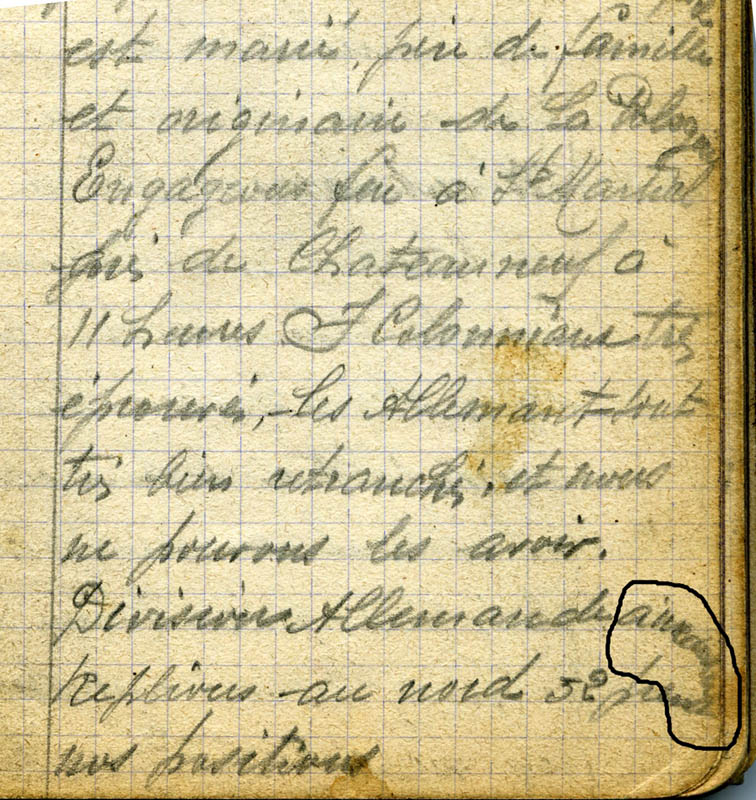 est marié, père de famille
et originaire de La
Engageons feu à St Martial
près de Chateauneuf à
11 heures I Colonnians très
éprouvés, les Allemant sont
très bien retranchés, et nous
ne pouvons les avoir.
Division Allemande
Replions au nord 52
nos positions